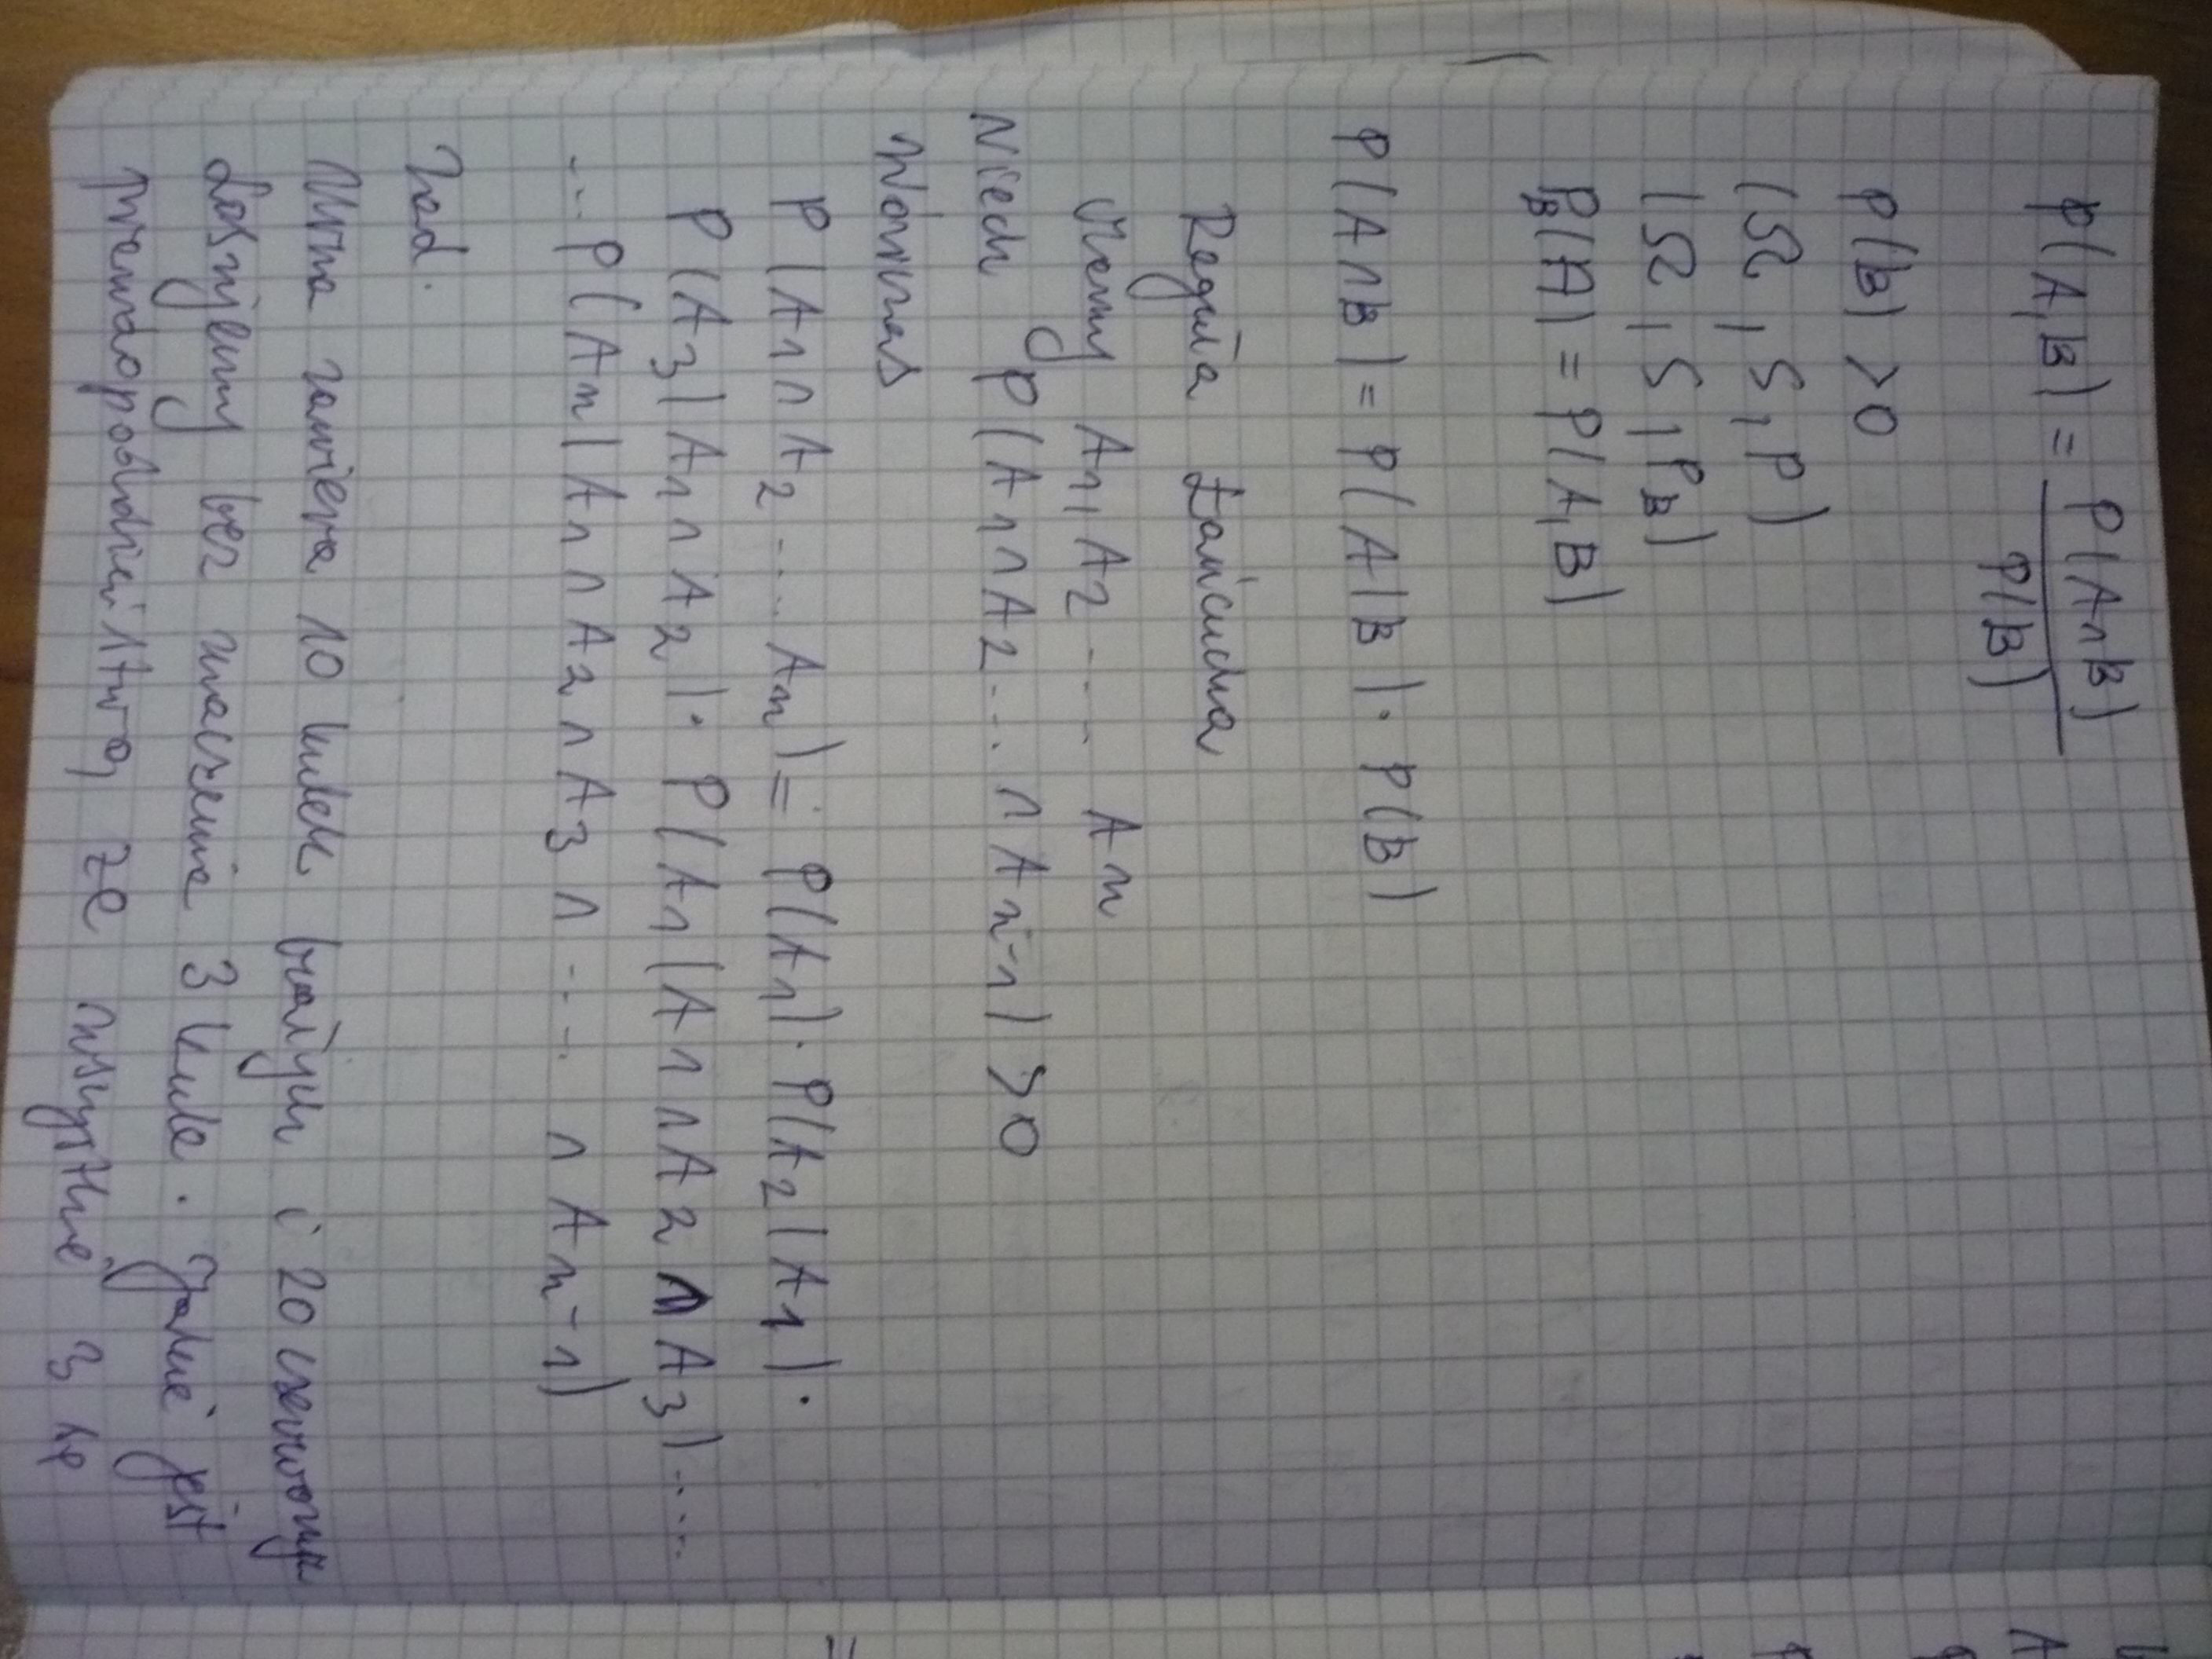 P(A,B) = P(A∩B)
P(B)
P(B) > 0
(Ω, S, P)
(Ω, S, P_B)
P_B(A) = P(A,B)
P(A∩B) = P(A|B) · P(B)
Reguła Łańcucha
A₁, A₂ .... An
Niech P(A₁∩A₂... ∩An-1) > 0
Wówczas
P(A₁∩A₂.... An) = P(A₁) · P(A₂|A₁) ·
P(A₃|A₁∩A₂) · P(A₁|A₁∩A₂∩A₃) ....
... P(An|A₁∩A₂∩A₃∩.... ∩An-1)
Zad.
Urna zawiera 10 kulek białych i 20 czerwonych
Losujemy bez zwracania 3 kule. Jakie jest
prawdopodobieństwo, że wszystkie 3 są